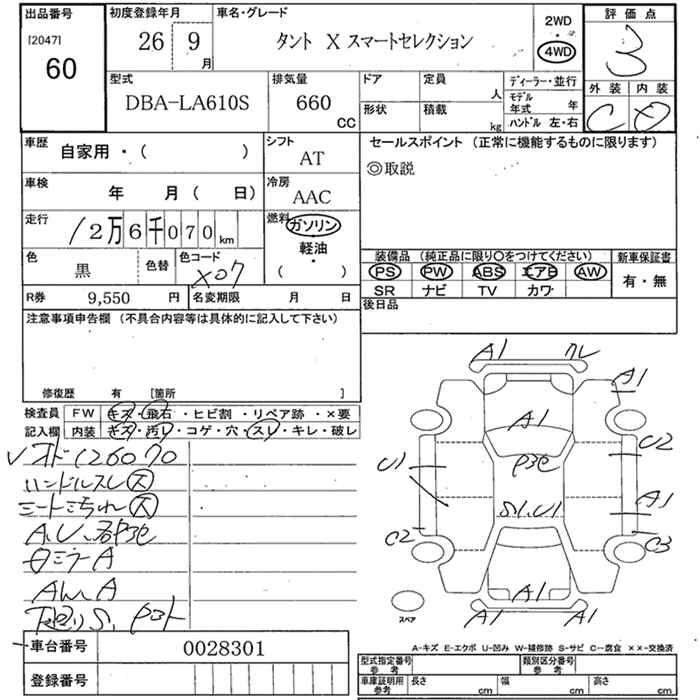 出品番号
[2047]
60
初度登録年月
26 9 月
車名・グレード
タント X スマートセレクション
2WD
・
4WD
評価点
3
外装 内装
C D
型式
DBA-LA610S
排気量
660
CC
ドア
定員
人
形状
積載
kg
ディーラー・並行
モデル年式 年
ハンドル 左・右
車歴
自家用・( )
シフト
AT
セールスポイント (正常に機能するものに限ります)
◎取説
車検
年 月( 日)
冷房
AAC
走行
12万6千070km
燃料
ガソリン
軽油
・
( )
色
黒
色替
色コード
X07
装備品 (純正品に限り○をつけてください)
新車保証書
PS PW ABS エアB AW
SR ナビ TV カワ
有・無
R券
9,550 円
名変期限 月 日
後日品
注意事項申告欄 (不具合内容等は具体的に記入して下さい)
修復歴 有 [箇所 ]
検査員記入欄
FW キズ・飛石・ヒビ割・リペア跡・×要
内装 キズ・汚レ・コゲ・穴・スレ・キレ・破レ
オド126070
ハンドルスレ大
A.U.
A
A
A1
A1
A1
U1
U2
A1
C2
C3
S1.U1
A1
A1
A1
スペア
車台番号
0028301
登録番号
A-キズ E-エクボ U-凹み W-補修跡 S-サビ C-腐食 ××-交換済
型式指定番号 参考
類別区分番号 参考
車庫証明用 参考
長さ cm
幅 cm
高さ cm